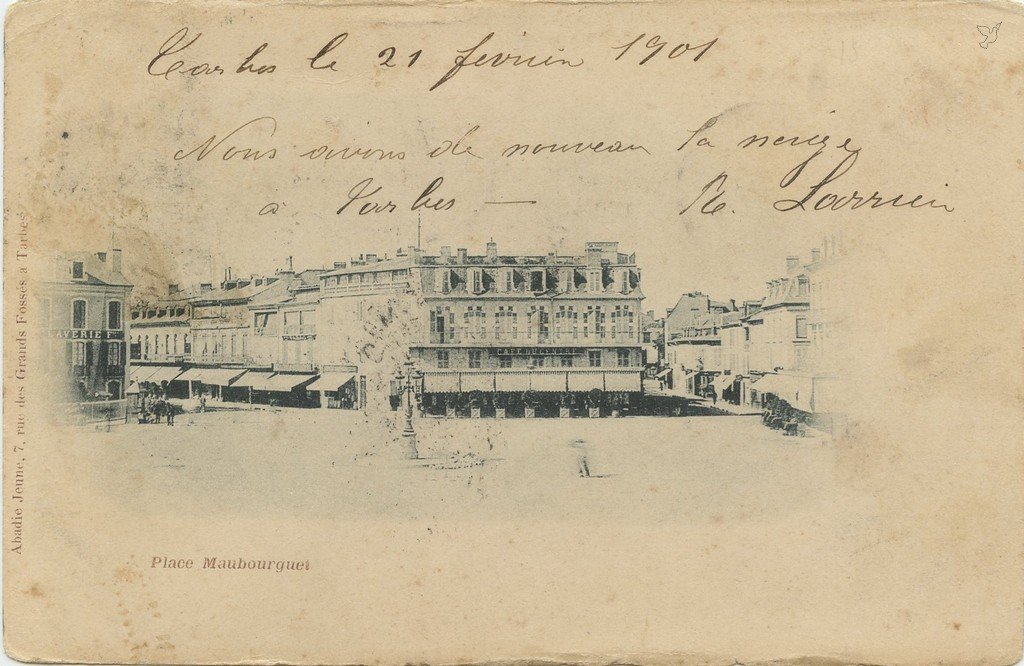 Tarbes le 21 février 1901
Nous avons de nouveau la neige
à Tarbes — R. Larrieu
LAVERIE F
CAFE DU CENTRE
Abadie Jeune, 7, rue des Grands Fossés à Tarbes
Place Maubourguet